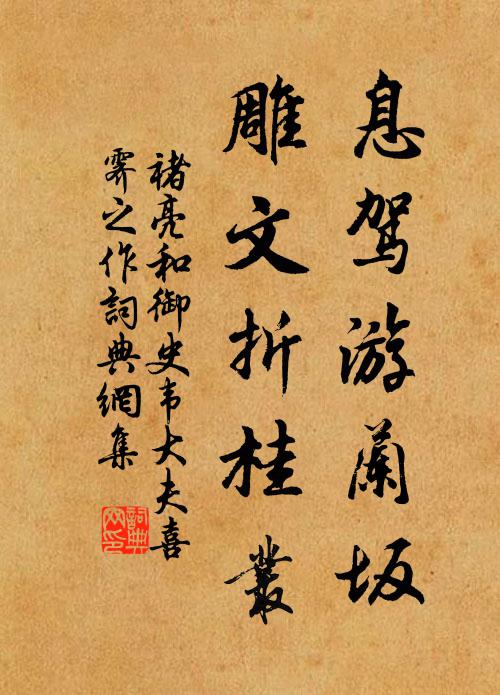 息驾游蘭坂
雕文折桂叢
褚亮和御史韦大夫喜
霽之作詞典網集
詞典网印